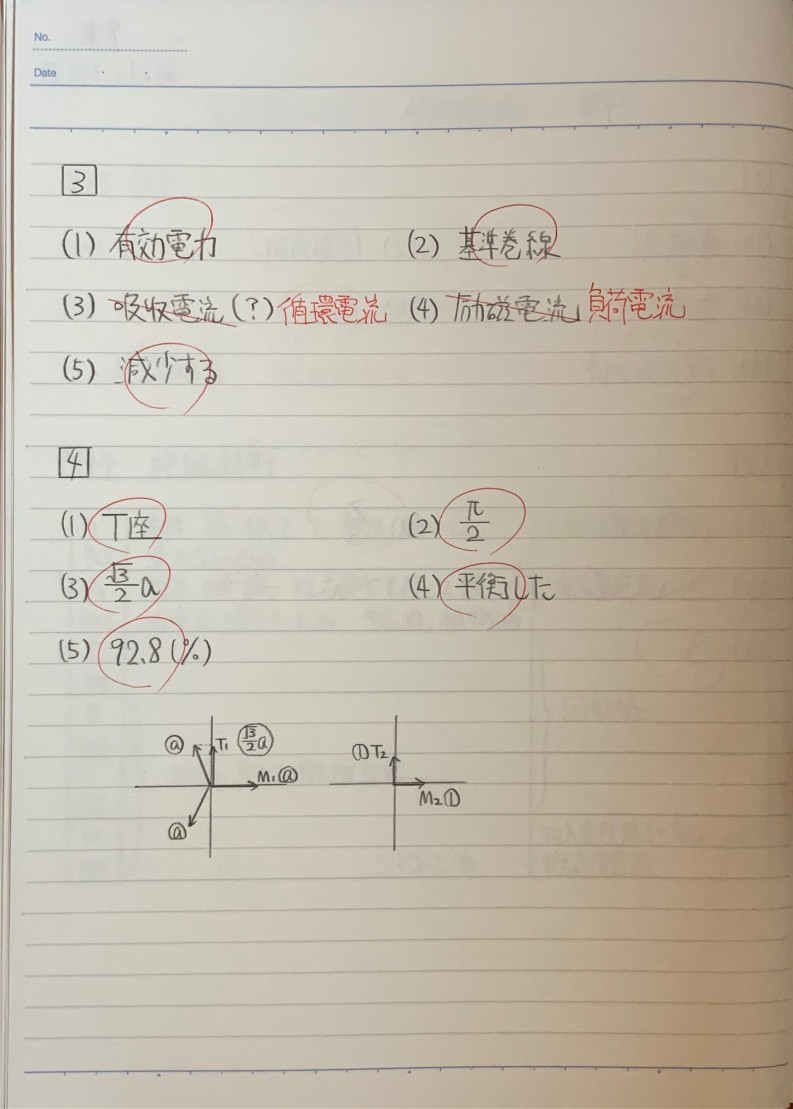 No.
Date
3
(1) 有効電力 (2) 基準巻線
(3) 吸収電流(?) 循環電流 (4) 励磁電流 負荷電流
(5) 減少する
4
(1) T座 (2) π/2
(3) √3/2 a (4) 平衡した
(5) 92.8(%)
ⓐ T₁ √3/2 a ① T₂
M₁ ⓐ M₂ ①
ⓐ